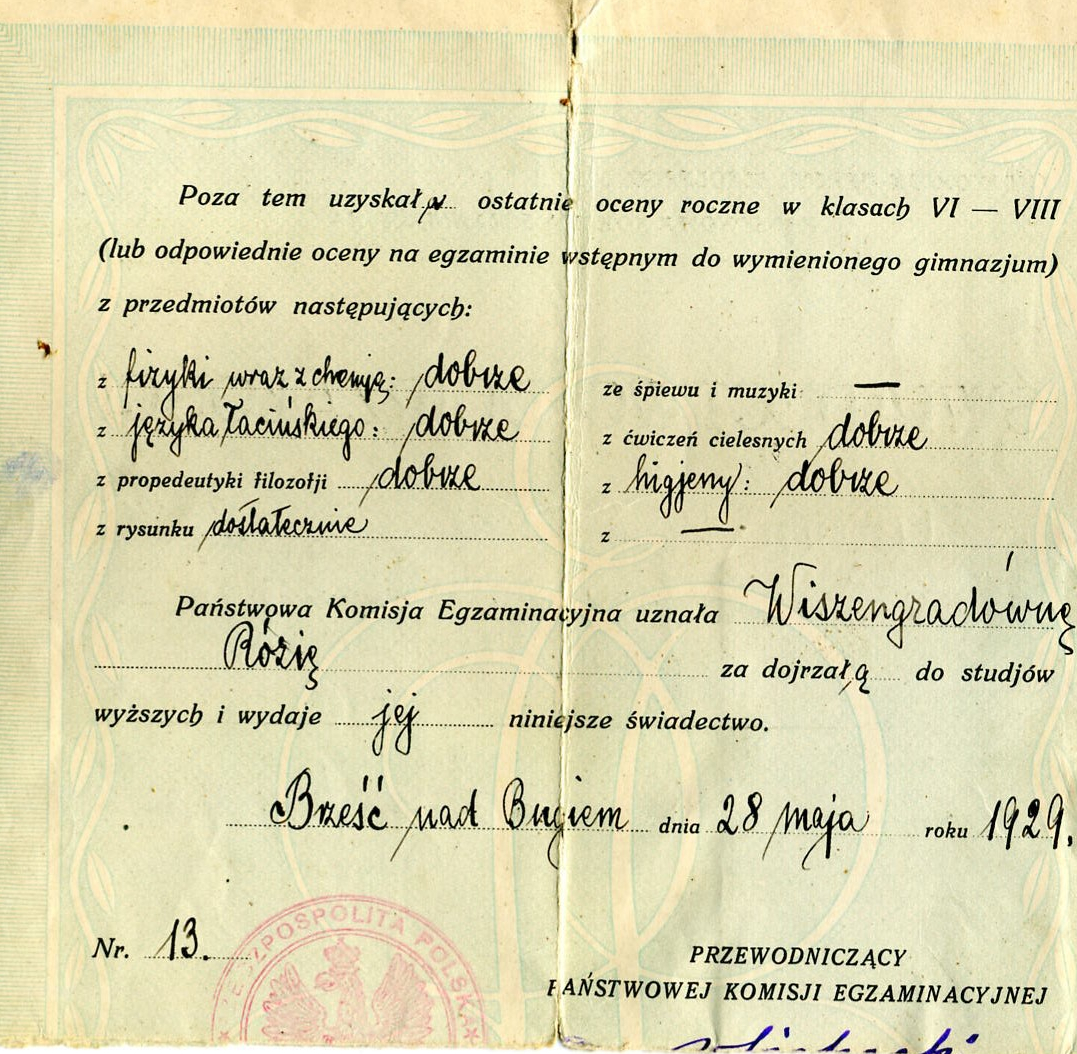 Poza tem uzyskała ostatnie oceny roczne w klasach VI — VIII
(lub odpowiednie oceny na egzaminie wstępnym do wymienionego gimnazjum)
z przedmiotów następujących:
z fizyki wraz z chemją: dobrze
z języka łacińskiego: dobrze
z propedeutyki filozofji dobrze
z rysunku dostatecznie
ze śpiewu i muzyki —
z ćwiczeń cielesnych dobrze
z higjeny: dobrze
z —
Państwowa Komisja Egzaminacyjna uznała Wiszengradównę
Rózię za dojrzałą do studjów
wyższych i wydaje jej niniejsze świadectwo.
Brześć nad Bugiem dnia 28 maja roku 1929.
Nr. 13.
RZECZPOSPOLITA POLSKA
PRZEWODNICZĄCY
PAŃSTWOWEJ KOMISJI EGZAMINACYJNEJ